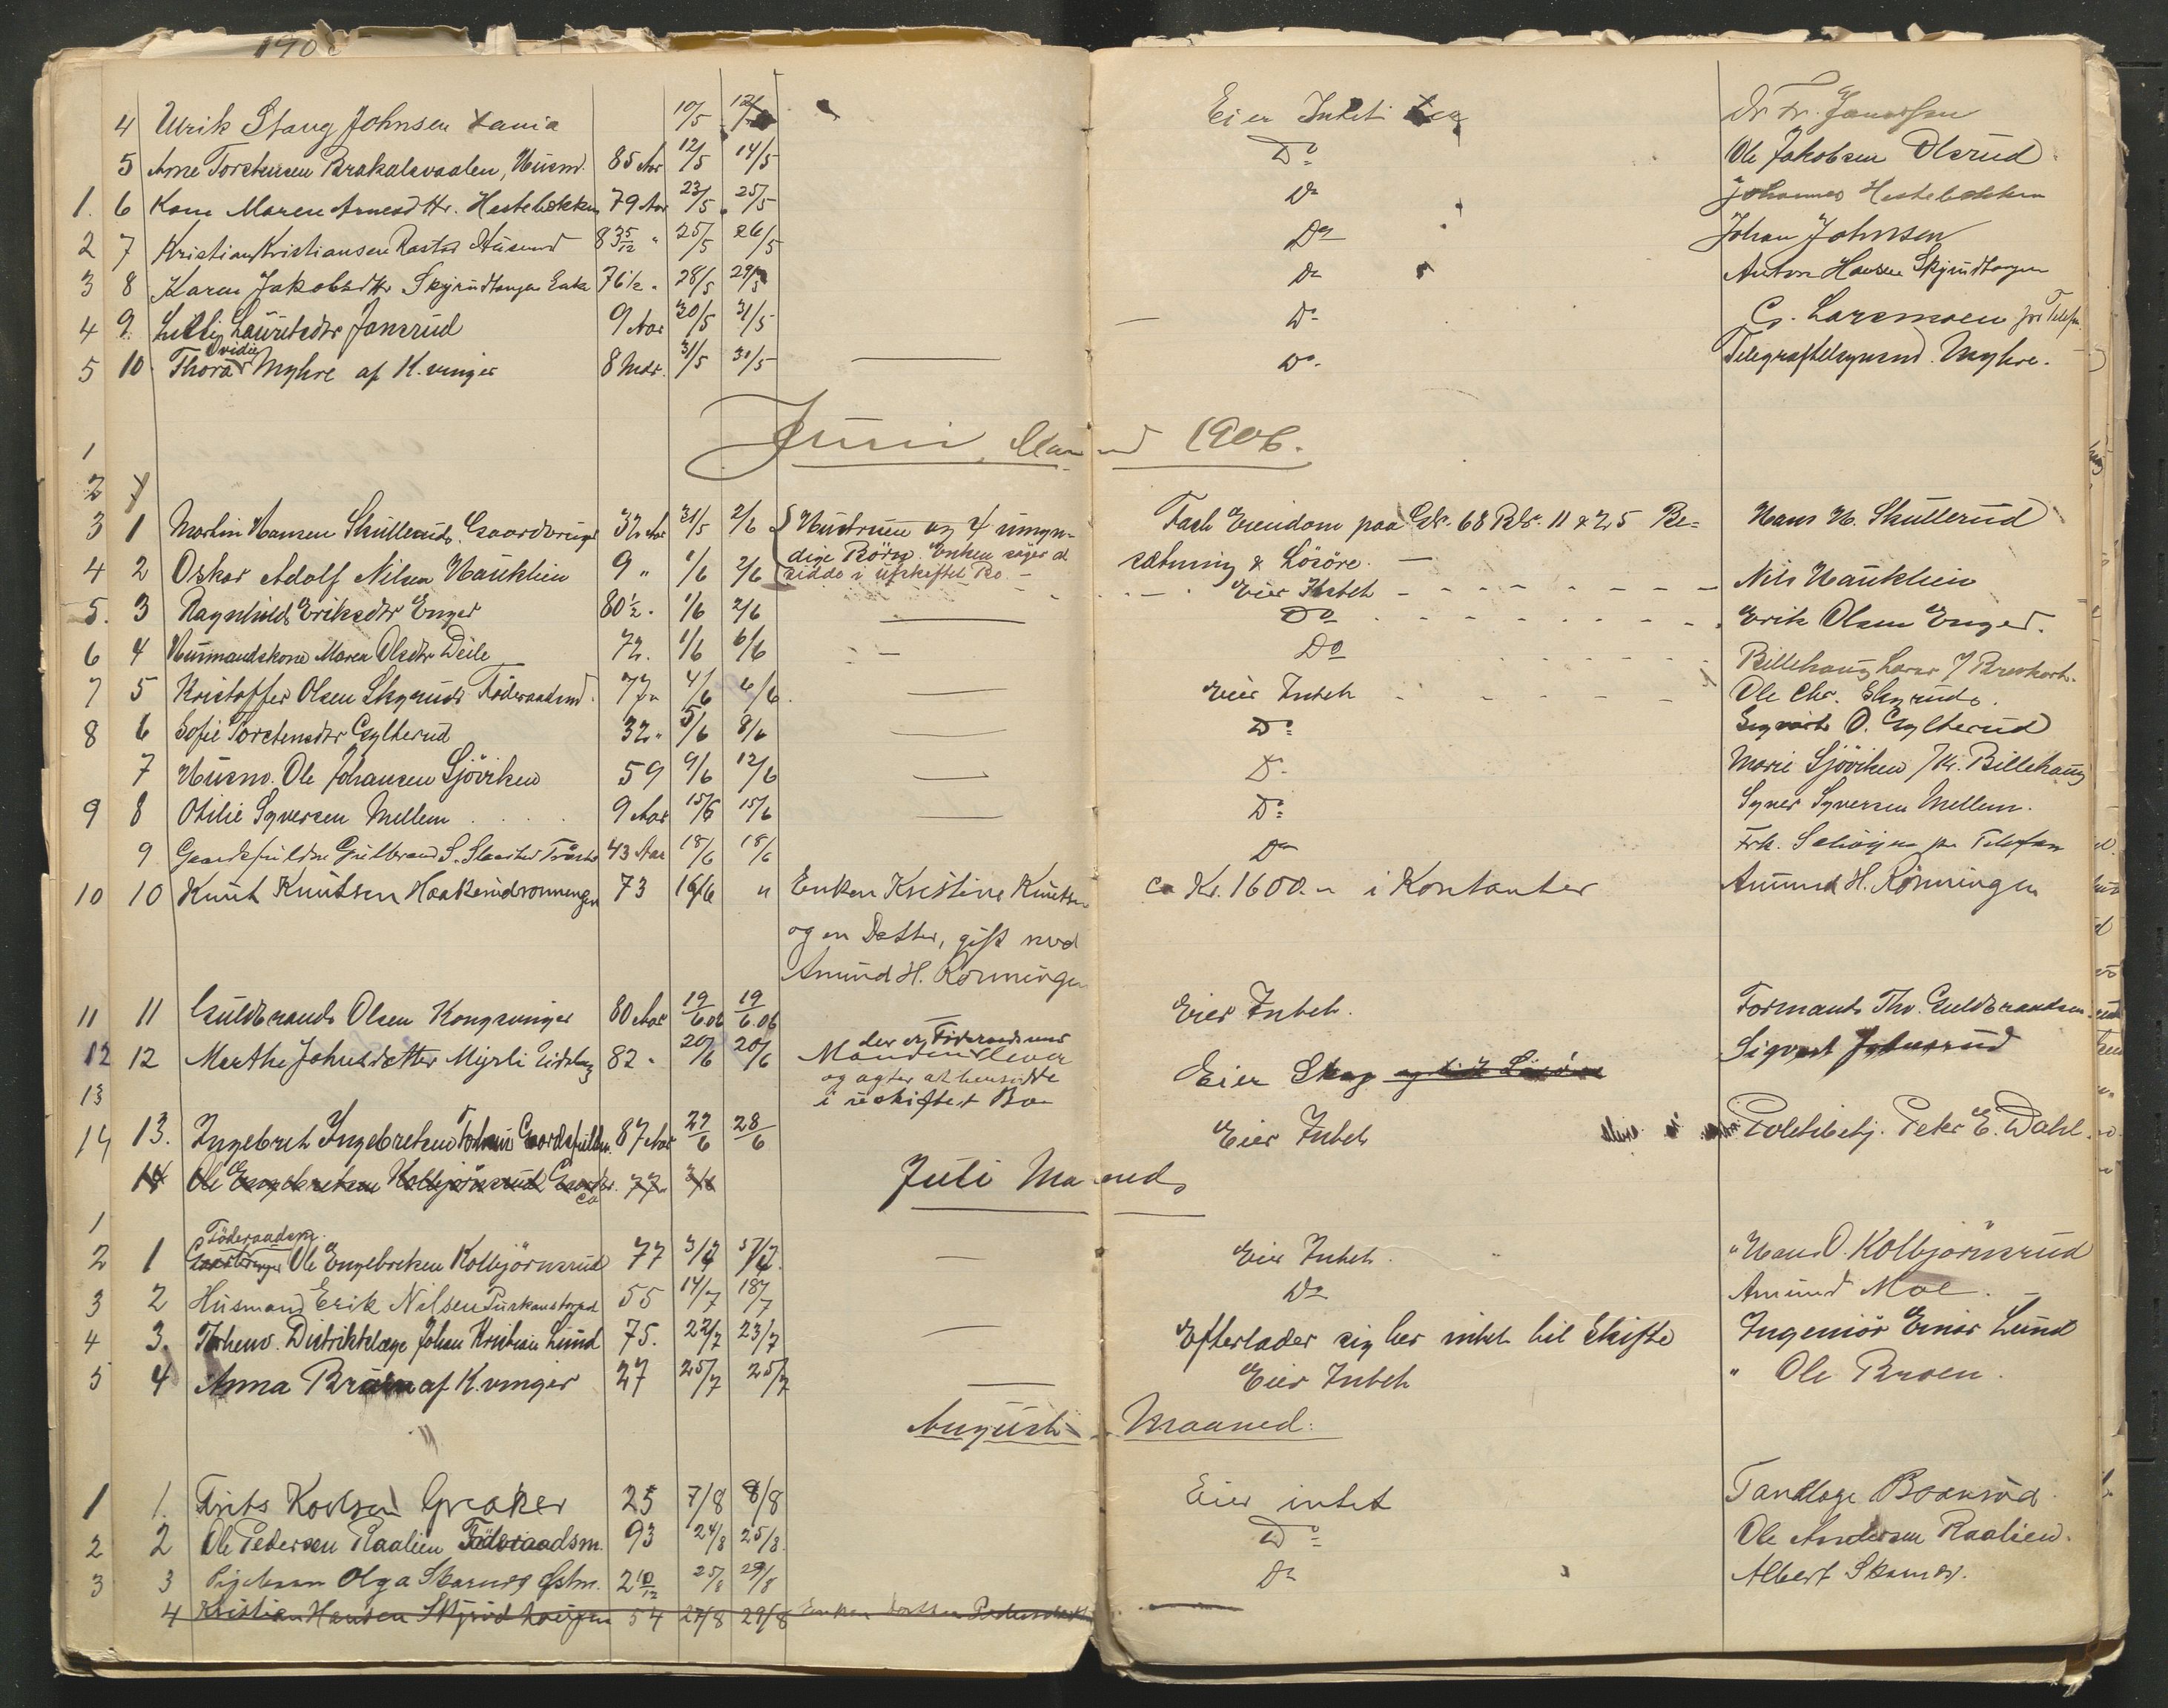 190
4 Ulrik Stang Johnsen 10/5 12/5 Eier Intet Dr Fr.
5 Arne Torstensen Brakalsvaalen, Husm. 85 Aar 12/5 14/5 Do Ole Jakobsen Olsrud
1. 6 Kone Maren Arnesdtr. Hestebekken 79 Aar 23/5 25/5 Do Johannes Hestebekken
2 7 Kristian Kristiansen Rastad Husmd 83 5/12 " 25/5 26/5 Do Johan Johnsen
3 8 Karen Jakobsdtr Skyrudtangen Enke 76 1/2 " 28/5 29/5 Do Anton Hansen Skyrudtangen
4 9. Lauritsdtr Jansrud 9 Aar 30/5 31/5 — Do G. Larsmoen pr Telefon
Ovidie
5 10 Thora Myhre af K.vinger 8 Mdr. 31/5 31/5 — Do. Myhre.
1 Juni Maaned 1906.
2
3 1 Martin Hansen Skullerud. Gaardbruger 32 Aar 31/5 2/6 Hustruen og 4 umyn- Fast Eiendom paa Gr. 68 Br. 11 & 25 Be= Hans H. Skullerud
dige Börn. Enken söger at sætning & Lösöre. —
4 2 Oskar Adolf Nilsen Hauklien 9 " 1/6 2/6 sidde i uskiftet Bo. — Eier Intet Nils Hauklien
5. 3 Ragnhild Eriksdtr Enger 80 1/2 " 1/6 2/6 — Do Erik Olsen Enger.
6 4 Husmandskone Maren Olsdtr Deile 72. 1/6 6/6 — Do Billehaug
7 5 Kristoffer Olsen Skyrud Föderaadsmd. 77 " 4/6 6/6 — Eier Intet Ole Chr. Skyrud.
8 6 Sofie Torstensdtr Gylterud 32 " 5/6 8/6 — Do Sigvart O. Gylterud
7 Husm. Ole Johansen Sjöviken 59 9/6 12/6 — Do Marie Sjöviken Billehaug
9 8 Otilie Syversen Mellem 9 Aar 15/6 15/6 — Do Syver Syversen Mellem.
9 Gulbrand S. 43 Aar 18/6 18/6 Do Frk. Schöyen pr Telefon
10 10 Knut Knutsen Haakerudrønningen 73 16/6 " Enken Kristine Knutsen ca Kr. 1600.- i Kontanter Amund H. Rönningen
og en Datter, gift med
Amund H. Rönningen
11 11 Guldbrand Olsen Kongsvinger 80 Aar 19/6.06 19/6.06 — Eier Intet. Formand Thv. Guldbrandsen
12 12 Marthe Johnsdatter Myrli Eidskog 82 " 20/6 20/6 Manden der er Föderaadsmd lever Eier Skap og lidt Lösöre Sigvart Johnsrud
og agter at hensidde
13 i uskiftet Bo
14 13. Ingebret Ingebretsen 87 Aar 27/6 28/6 Eier Intet Politibetj. Peter E. Dahl
14 Ole Engebretsen Kolbjörnsrud Gaardbr. ca 77 3/6 Juli Maaned
1
Föderaadsm.
2 1 Gaardbruger Ole Engebretsen Kolbjörnsrud 77 3/7 5/7 — Eier Intet. " Hans O. Kolbjörnsrud
3 2 Husmand Erik Nilsen 55 14/7 18/7 Do Amund Moe.
4 3. Forhenv. Distriktslæge Johan Kristian Lund 75. 22/7 23/7 — Efterlader sig her intet til Skifte Ingeniör Einar Lund
5 4 Anna Broen af K.vinger 27 25/7 25/7 — Eier Intet " Ole Broen.
August Maaned:
1 1. Frits Karlsen Greaker 25 7/8 8/8 Eier intet Tandlæge
2 2 Ole Pedersen Raalien Föderaadsm. 93 24/8 25/8. Do Ole Andersen Raalien.
3 3 Pigebarn Olga Skarnes 2 10/12 25/8 29/8 Do Albert Skarnes.
4 Kristian Hansen Skyrudhaugen 54 27/8 29/8 Enken